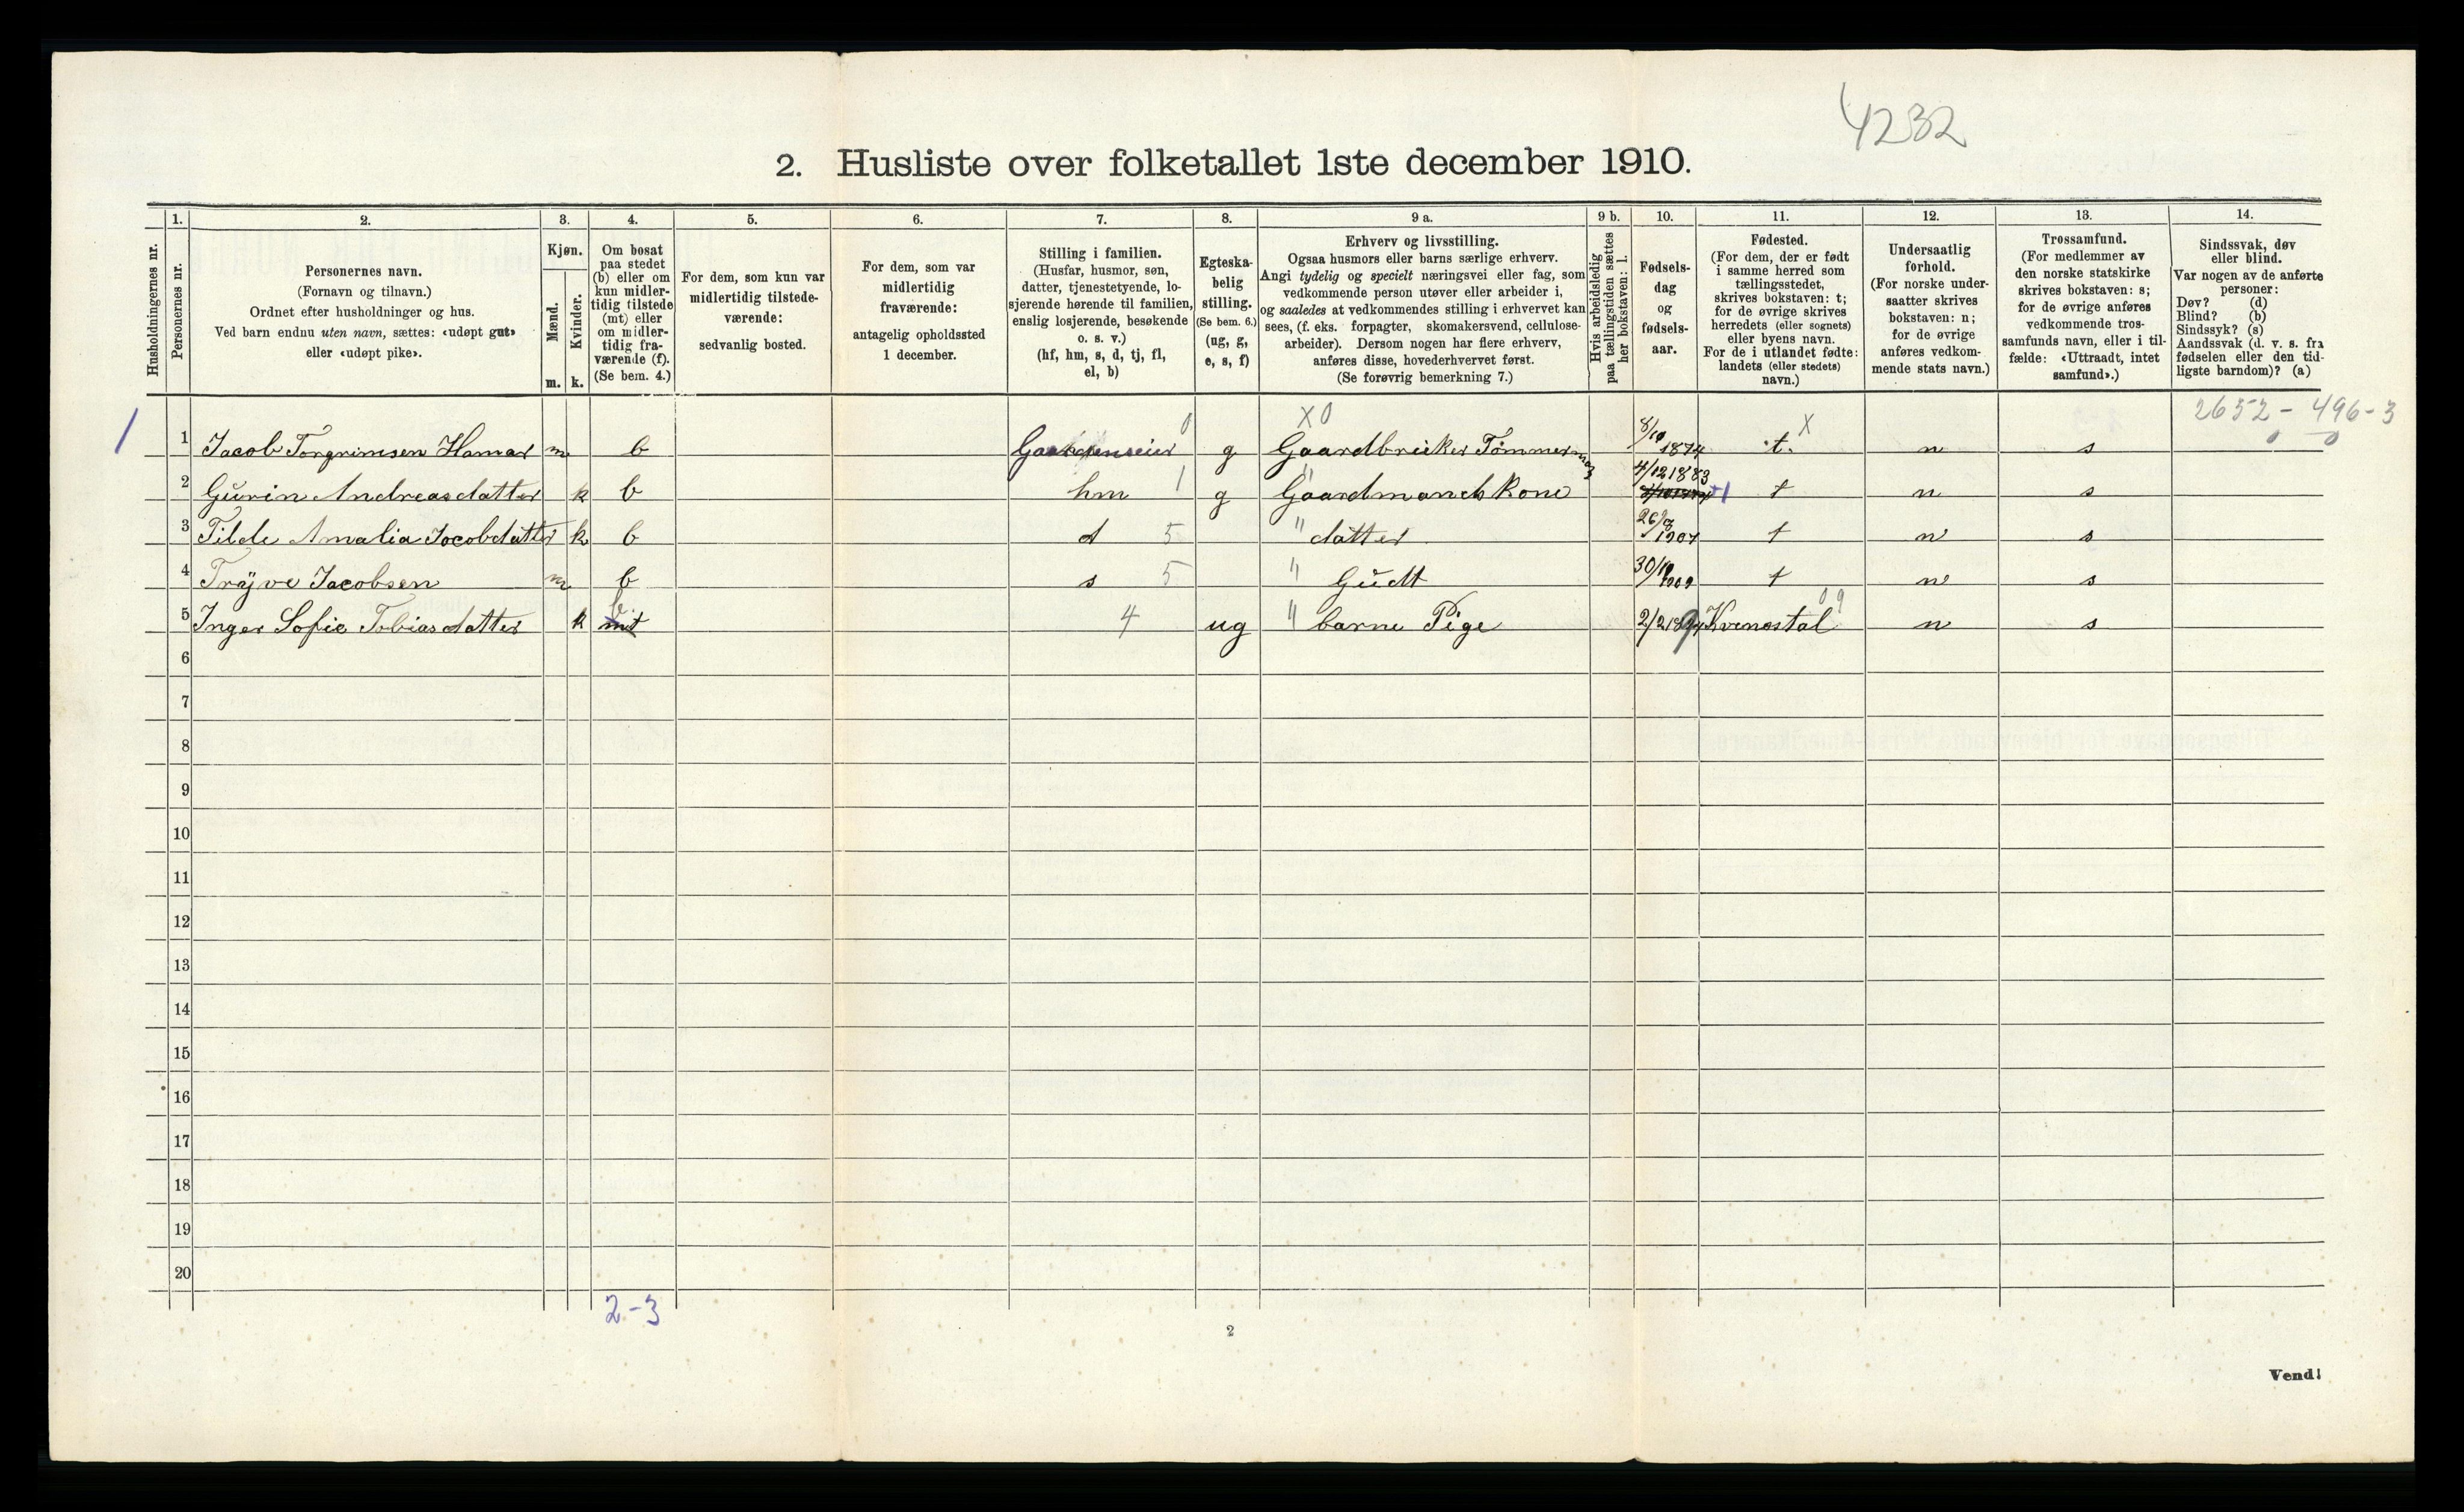 4232
2. Husliste over folketallet 1ste december 1910.
Husholdningernes nr.
1.
Personernes nr.
2.
Personernes navn.
(Fornavn og tilnavn.)
Ordnet efter husholdninger og hus.
Ved barn endnu uten navn, sættes: «udøpt gut»
eller «udøpt pike».
3.
Kjøn.
Mænd.
m.
Kvinder.
k.
4.
Om bosat
paa stedet
(b) eller om
kun midler-
tidig tilstede
(mt) eller
om midler-
tidig fra-
værende (f).
(Se bem. 4.)
5.
For dem, som kun var
midlertidig tilstede-
værende:
sedvanlig bosted.
6.
For dem, som var
midlertidig
fraværende:
antagelig opholdssted
1 december.
7.
Stilling i familien.
(Husfar, husmor, søn,
datter, tjenestetyende, lo-
sjerende hørende til familien,
enslig losjerende, besøkende
o. s. v.)
(hf, hm, s, d, tj, fl,
el, b)
8.
Egteska-
belig
stilling.
(Se bem. 6.)
(ug, g,
e, s, f)
9 a.
Erhverv og livsstilling.
Ogsaa husmors eller barns særlige erhverv.
Angi tydelig og specielt næringsvei eller fag, som
vedkommende person utøver eller arbeider i,
og saaledes at vedkommendes stilling i erhvervet kan
sees, (f. eks. forpagter, skomakersvend, cellulose-
arbeider). Dersom nogen har flere erhverv,
anføres disse, hovederhvervet først.
(Se forøvrig bemerkning 7.)
9 b.
Hvis arbeidsledig
paa tællingstiden sættes
her bokstaven: l.
10.
Fødsels-
dag
og
fødsels-
aar.
11.
Fødested.
(For dem, der er født
i samme herred som
tællingsstedet,
skrives bokstaven: t;
for de øvrige skrives
herredets (eller sognets)
eller byens navn.
For de i utlandet fødte:
landets (eller stedets)
navn.)
12.
Undersaatlig
forhold.
(For norske under-
saatter skrives
bokstaven: n;
for de øvrige
anføres vedkom-
mende stats navn.)
13.
Trossamfund.
(For medlemmer av
den norske statskirke
skrives bokstaven: s;
for de øvrige anføres
vedkommende tros-
samfunds navn, eller i til-
fælde: «Uttraadt, intet
samfund».)
14.
Sindssvak, døv
eller blind.
Var nogen av de anførte
personer:
Døv? (d)
Blind? (b)
Sindssyk? (s)
Aandssvak (d. v. s. fra
fødselen eller den tid-
ligste barndom)? (a)
2652 - 496-3
0 0
X 0
1 1 Jacob Torgrimsen Hamar m b 0 g Gaardbruker Tømmerman 8/10 1874 t. X n s
2 Gurin Andreasdatter k b hm 1 g Gaardmands kone 4/12 1883 t n s
3 Tilde Amalia Jocobdatter k b d 5 " datter 26/8 1907 t n s
4 Tryve Jacobsen m b s 5 " Gudt 30/10 1909 t n s
5 Inger Sofie Tobiasdatter k b mt 4 ug " barne Pige 2/2 1897 Kvinestal 09 n s
6
7
8
9
10
11
12
13
14
15
16
17
18
19
20
2-3
2
Vend!